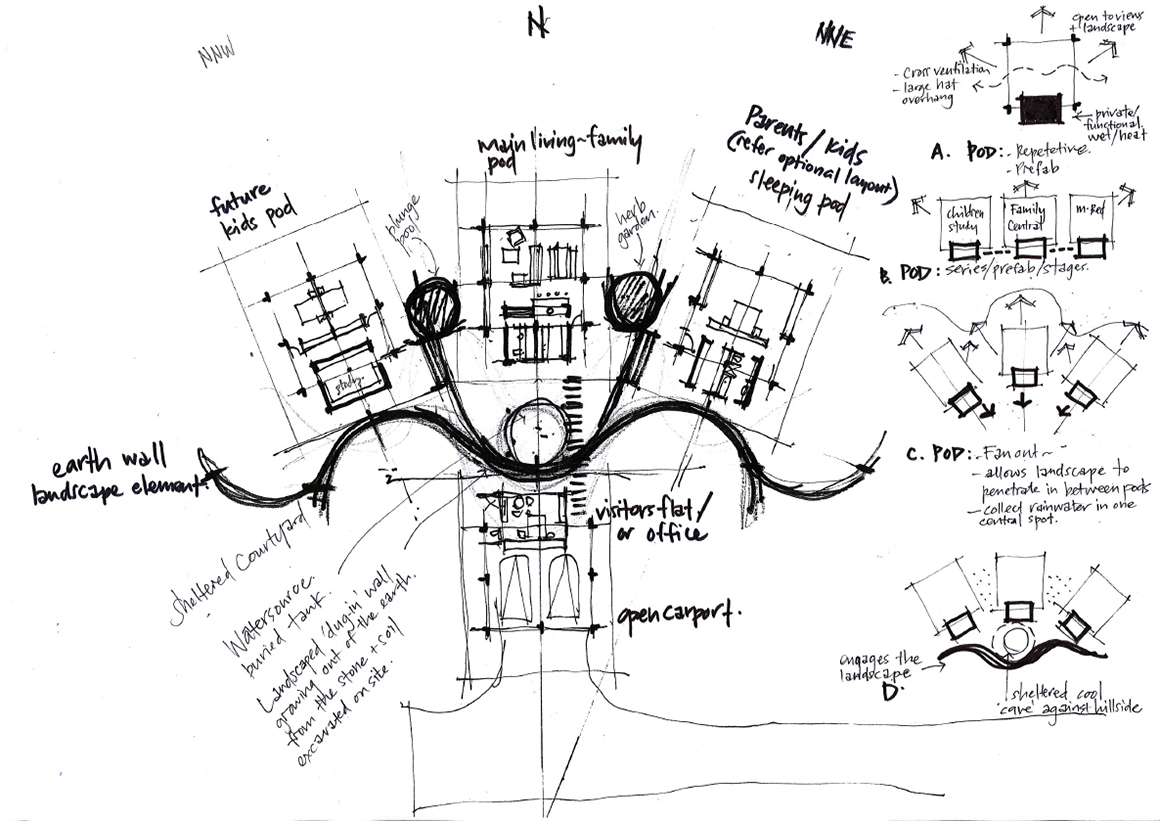 NNW
N
NNE
main living~family
pod
Parents / kids
(refer optional layout)
sleeping pod
future
kids pod
plunge
pool
herb
garden.
study.
earth wall
landscape element.
visitors flat/
or office
open carport.
sheltered courtyard
Watersource.
buried tank.
Landscaped 'dug-in' wall
growing out of the earth.
from the stone + soil
excavated on site.
open to views
+ landscape
- Cross ventilation
- large hat
overhang
private/
functional.
wet/heat
A. POD:- Repetetive.
- Prefab
children
study
Family
Central
m-Bed
B. POD: series/prefab/stages.
C. POD:- Fan out~
- allows landscape to
penetrate in between pods
- collect rainwater in one
central spot.
engages the
landscape
D.
sheltered cool
'cave' against hillside